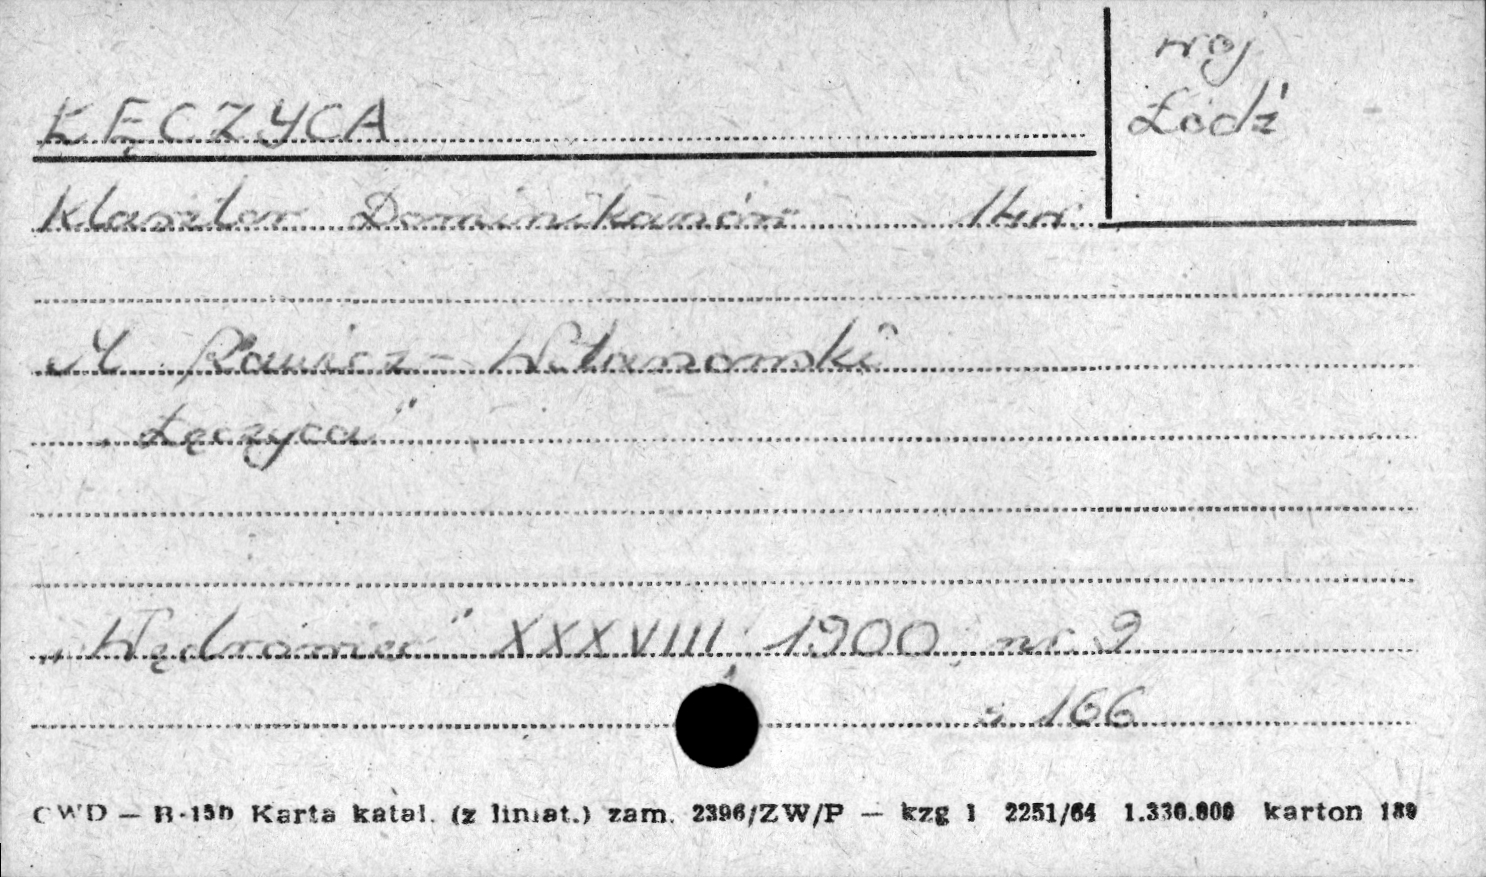 ŁĘCZYCA
woj
Łódź
Klasztor Dominikanów 14w.
M. Rawicz-Witanowski
„Łęczyca"
„Wędrowiec" XXXVIII, 1900, nr 9
s 166
CWD — B-15b Karta katal. (z liniat.) zam. 2396/ZW/P — kzg 1 2251/64 1.330.000 karton 189